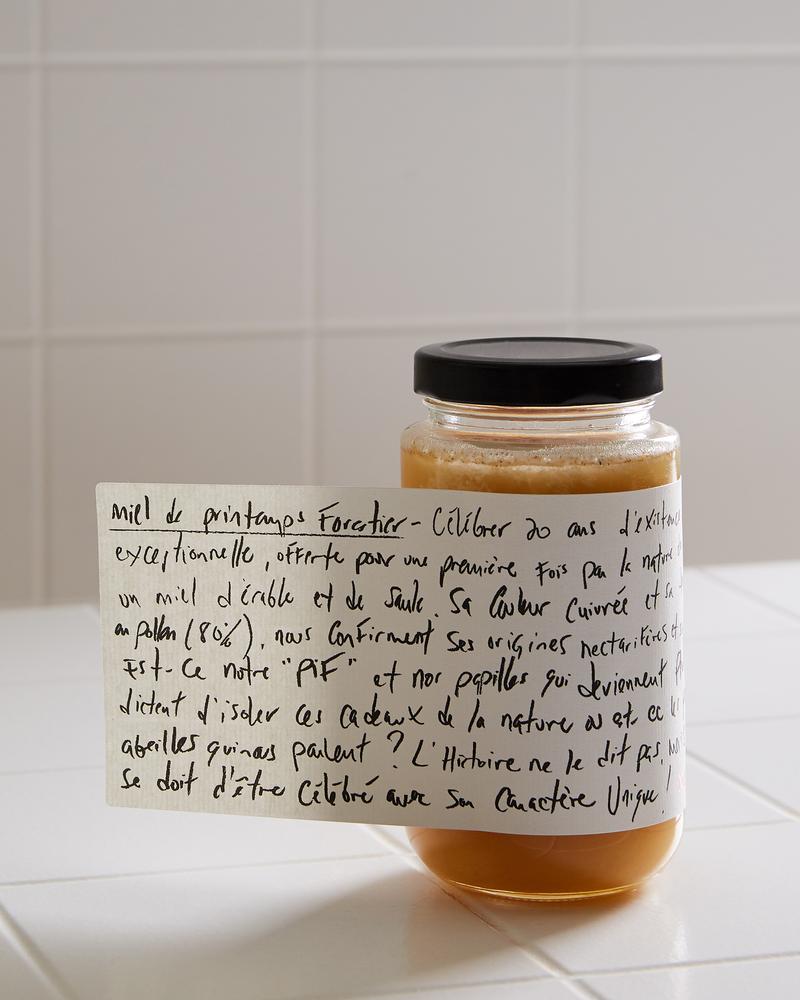 Miel de printemps Forestier - Célébrer 20 ans d'existence
exceptionnelle, offerte pour une première fois par la nature
un miel d'érable et de saule. Sa Couleur Cuivrée et sa
en pollen (80%), nous Confirment Ses origines nectarifères et
Est-Ce notre "PiF" et nos papilles qui deviennent
dictent d'isoler ces Cadeaux de la nature ou est-ce les
abeilles qui nous parlent ? L'Histoire ne le dit pas,
Se doit d'être Célébré avec Son Caractère Unique !